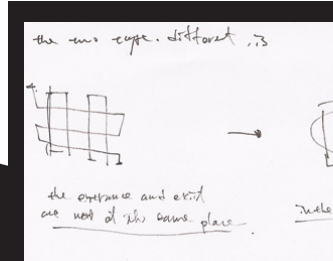 the two type. different
the entrance and exit
are not at the same place.
in the